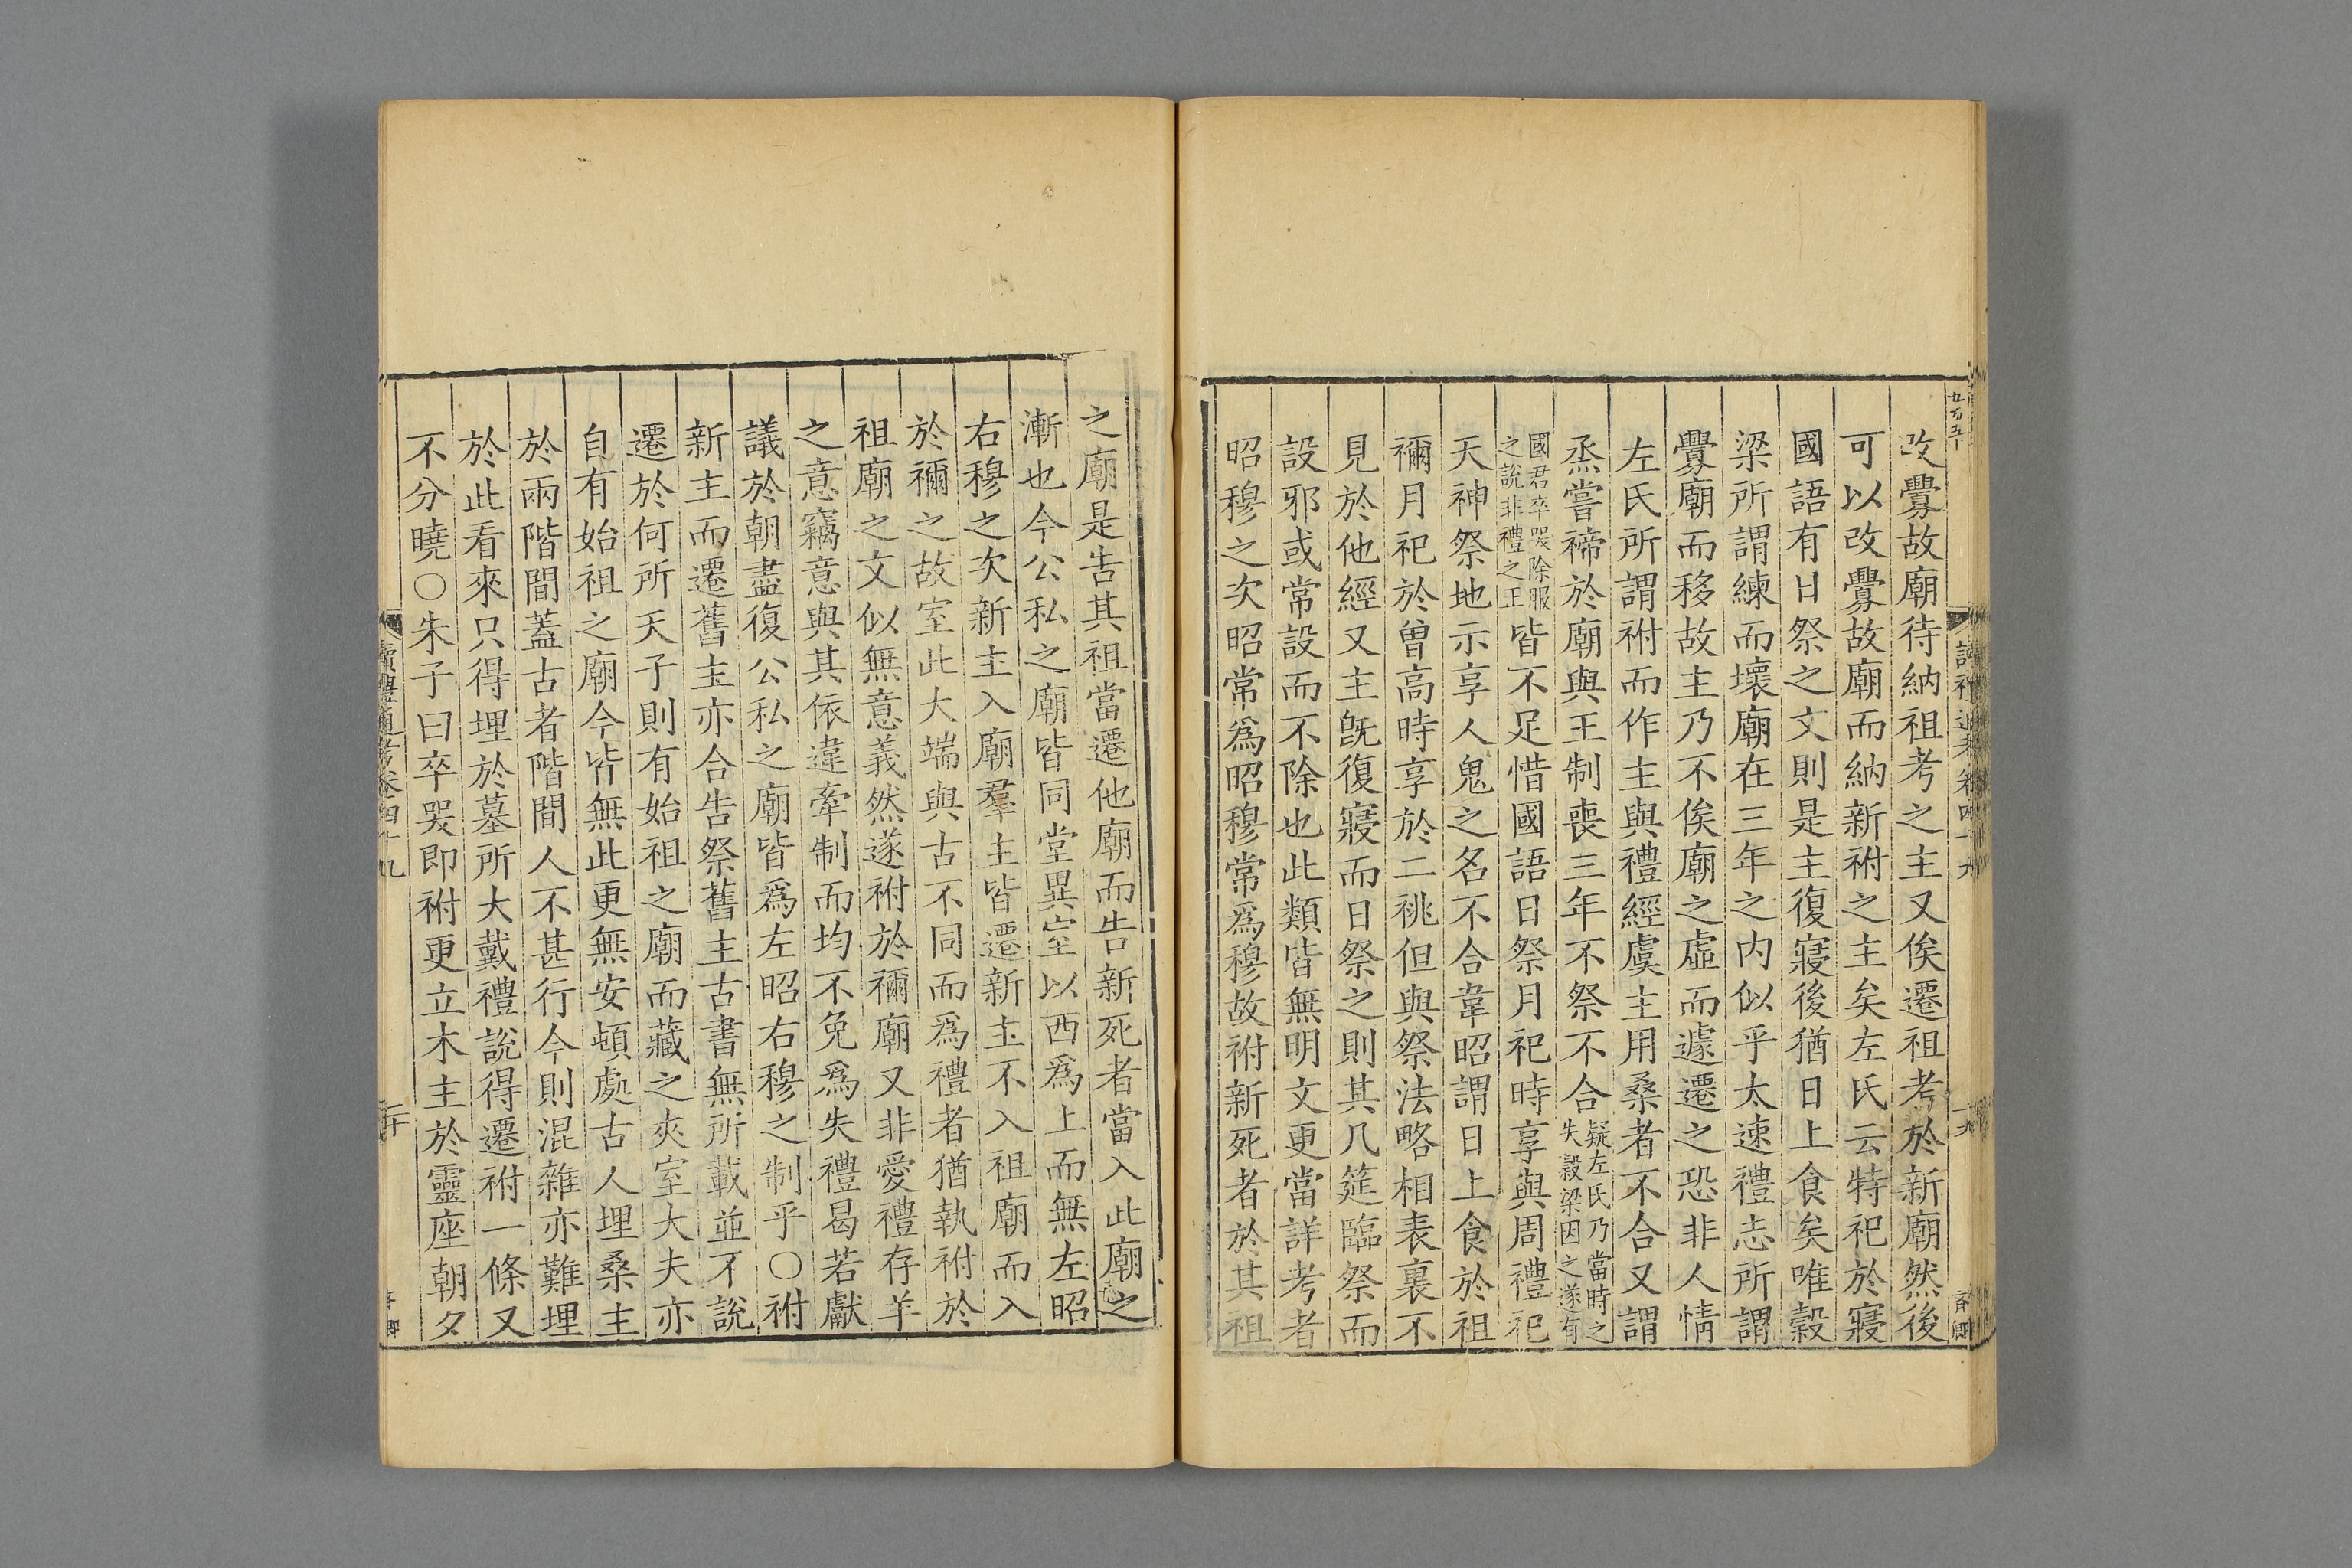 改釁故廟待納祖考之主又俟遷祖考於新廟然後
可以改釁故廟而納新祔之主矣左氏云特祀於寢
國語有日祭之文則是主復寢後猶日上食矣唯穀
梁所謂練而壞廟在三年之内似乎太速禮志所謂
釁廟而移故主乃不俟廟之虛而遽遷之恐非人情
左氏所謂祔而作主與禮經虞主用桑者不合又謂
烝嘗禘於廟與王制喪三年不祭不合疑左氏乃當時之失穀梁因之遂有
國君卒哭除服之說非禮之正皆不足惜國語日祭月祀時享與周禮祀
天神祭地示享人鬼之名不合韋昭謂日上食於祖
禰月祀於曾高時享於二祧但與祭法略相表裏不
見於他經又主既復寢而日祭之則其几筵臨祭而
設邪或常設而不除也此類皆無明文更當詳考者
昭穆之次昭常爲昭穆常爲穆故祔新死者於其祖
之廟是告其祖當遷他廟而告新死者當入此廟之
漸也今公私之廟皆同堂異室以西爲上而無左昭
右穆之次新主入廟羣主皆遷新主不入祖廟而入
於禰之故室此大端與古不同而爲禮者猶執祔於
祖廟之文似無意義然遂祔於禰廟又非愛禮存羊
之意竊意與其依違牽制而均不免爲失禮曷若獻
議於朝盡復公私之廟皆爲左昭右穆之制乎○祔
新主而遷舊主亦合告祭舊主古書無所載並不說
遷於何所天子則有始祖之廟而藏之夾室大夫亦
自有始祖之廟今皆無此更無安頓處古人埋桑主
於兩階間蓋古者階間人不甚行今則混雜亦難埋
於此看來只得埋於墓所大戴禮說得遷祔一條又
不分曉○朱子曰卒哭即祔更立木主於靈座朝夕
讀禮通考卷四十九
二十